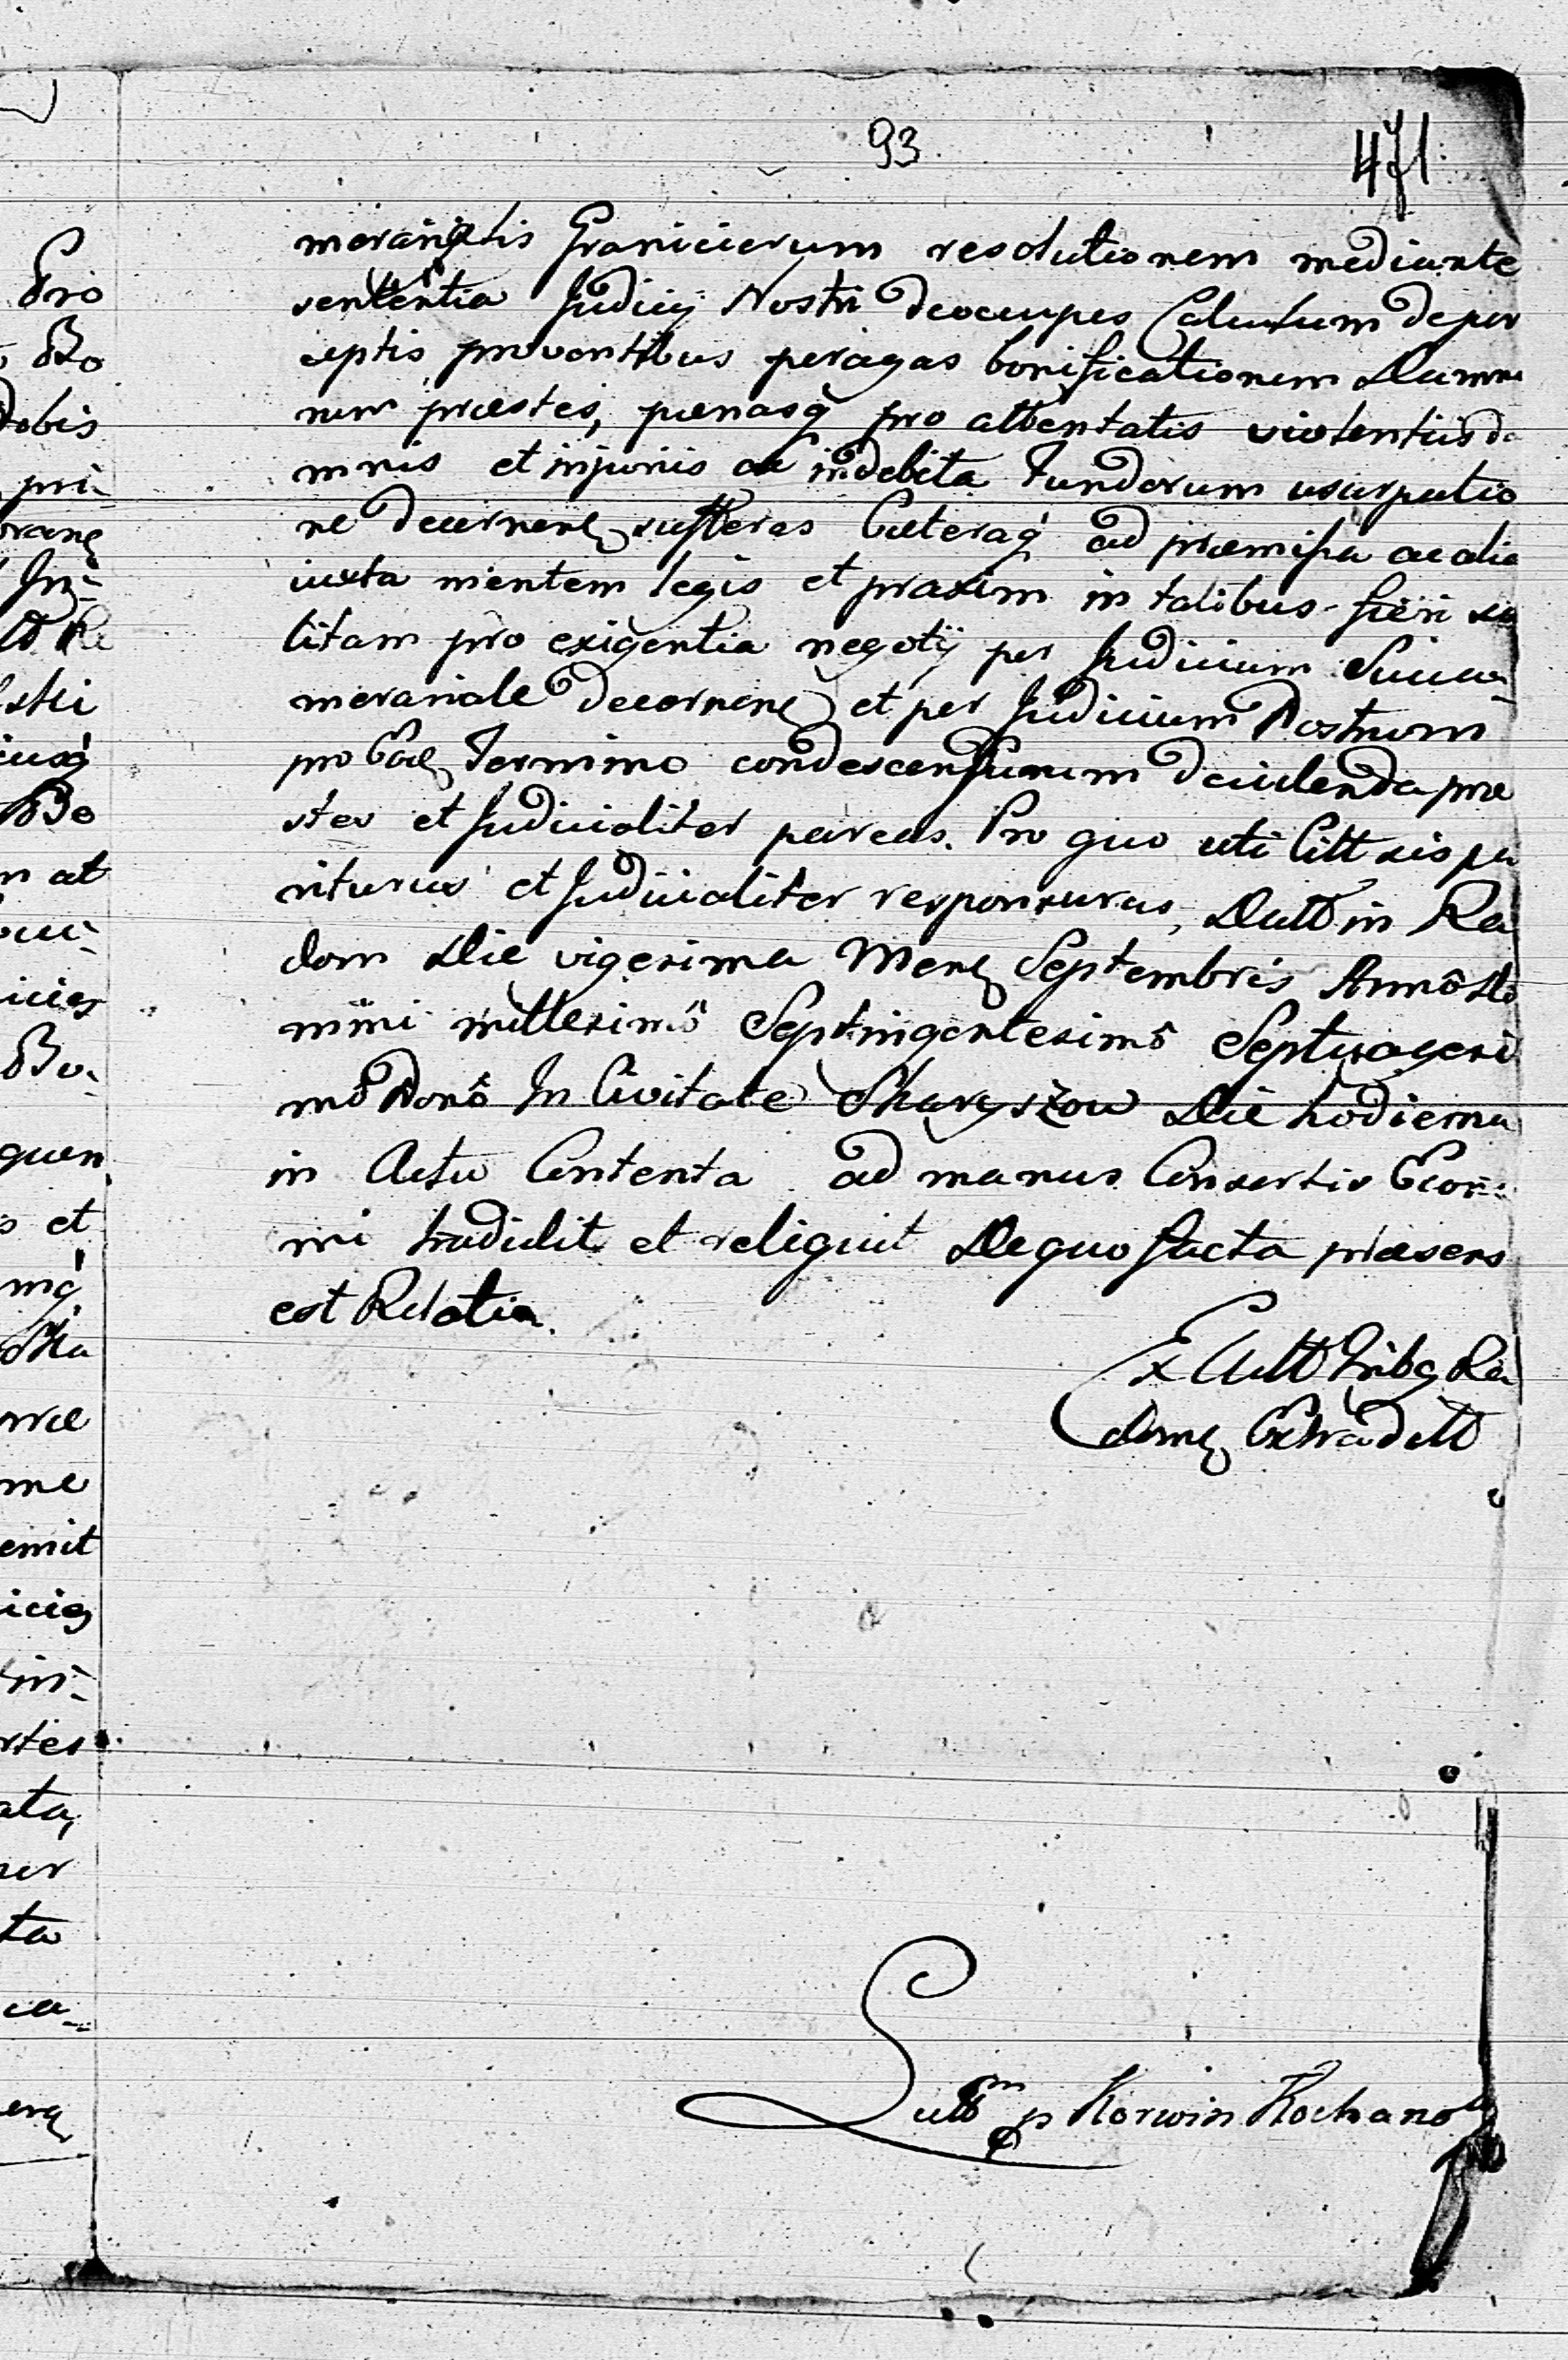 93.
471
Graniciarum resolutionem mediante
sententia Judicij Nostri deoccupes Calculum de per
ceptis proventibus peragas bonificationem Damno
rum præstes, pænasq pro attentatis violentiis da
mnis et injuriis ac indebita Fundorum usurpatio
ne decernen sufferas Cæteraq ad præmissa ac alia
iuxta mentem legis et praxim in talibus fieri so
litam pro exigentia negotij per Judicium Succa-
merariale decernen et per Judicium Nostrum
pro Termino condescensurum decidenda præ
stes et Judicialiter pareas. Pro quo uti Citt sis pa
riturus et Judicialiter responsurus, Datt in Ra
dom Die vigesima Mens Septembris Annô Do
mini millesimô Septingentesimô Septuagesi
mô Nonô In Civitate Skaryszow Die hodierna
in Actu Contenta ad manus Consortis Eor
mi tradidit et reliquit De quo facta præsens
est Relatio.
Ex Actt Tribg Ra
domg Extraditt
Korwin Kochano
Pro
Bo
bis
pri-
Be
m at
icies
Bo-
quen
s et
me
emit
rtes
ata,
ta
ca-